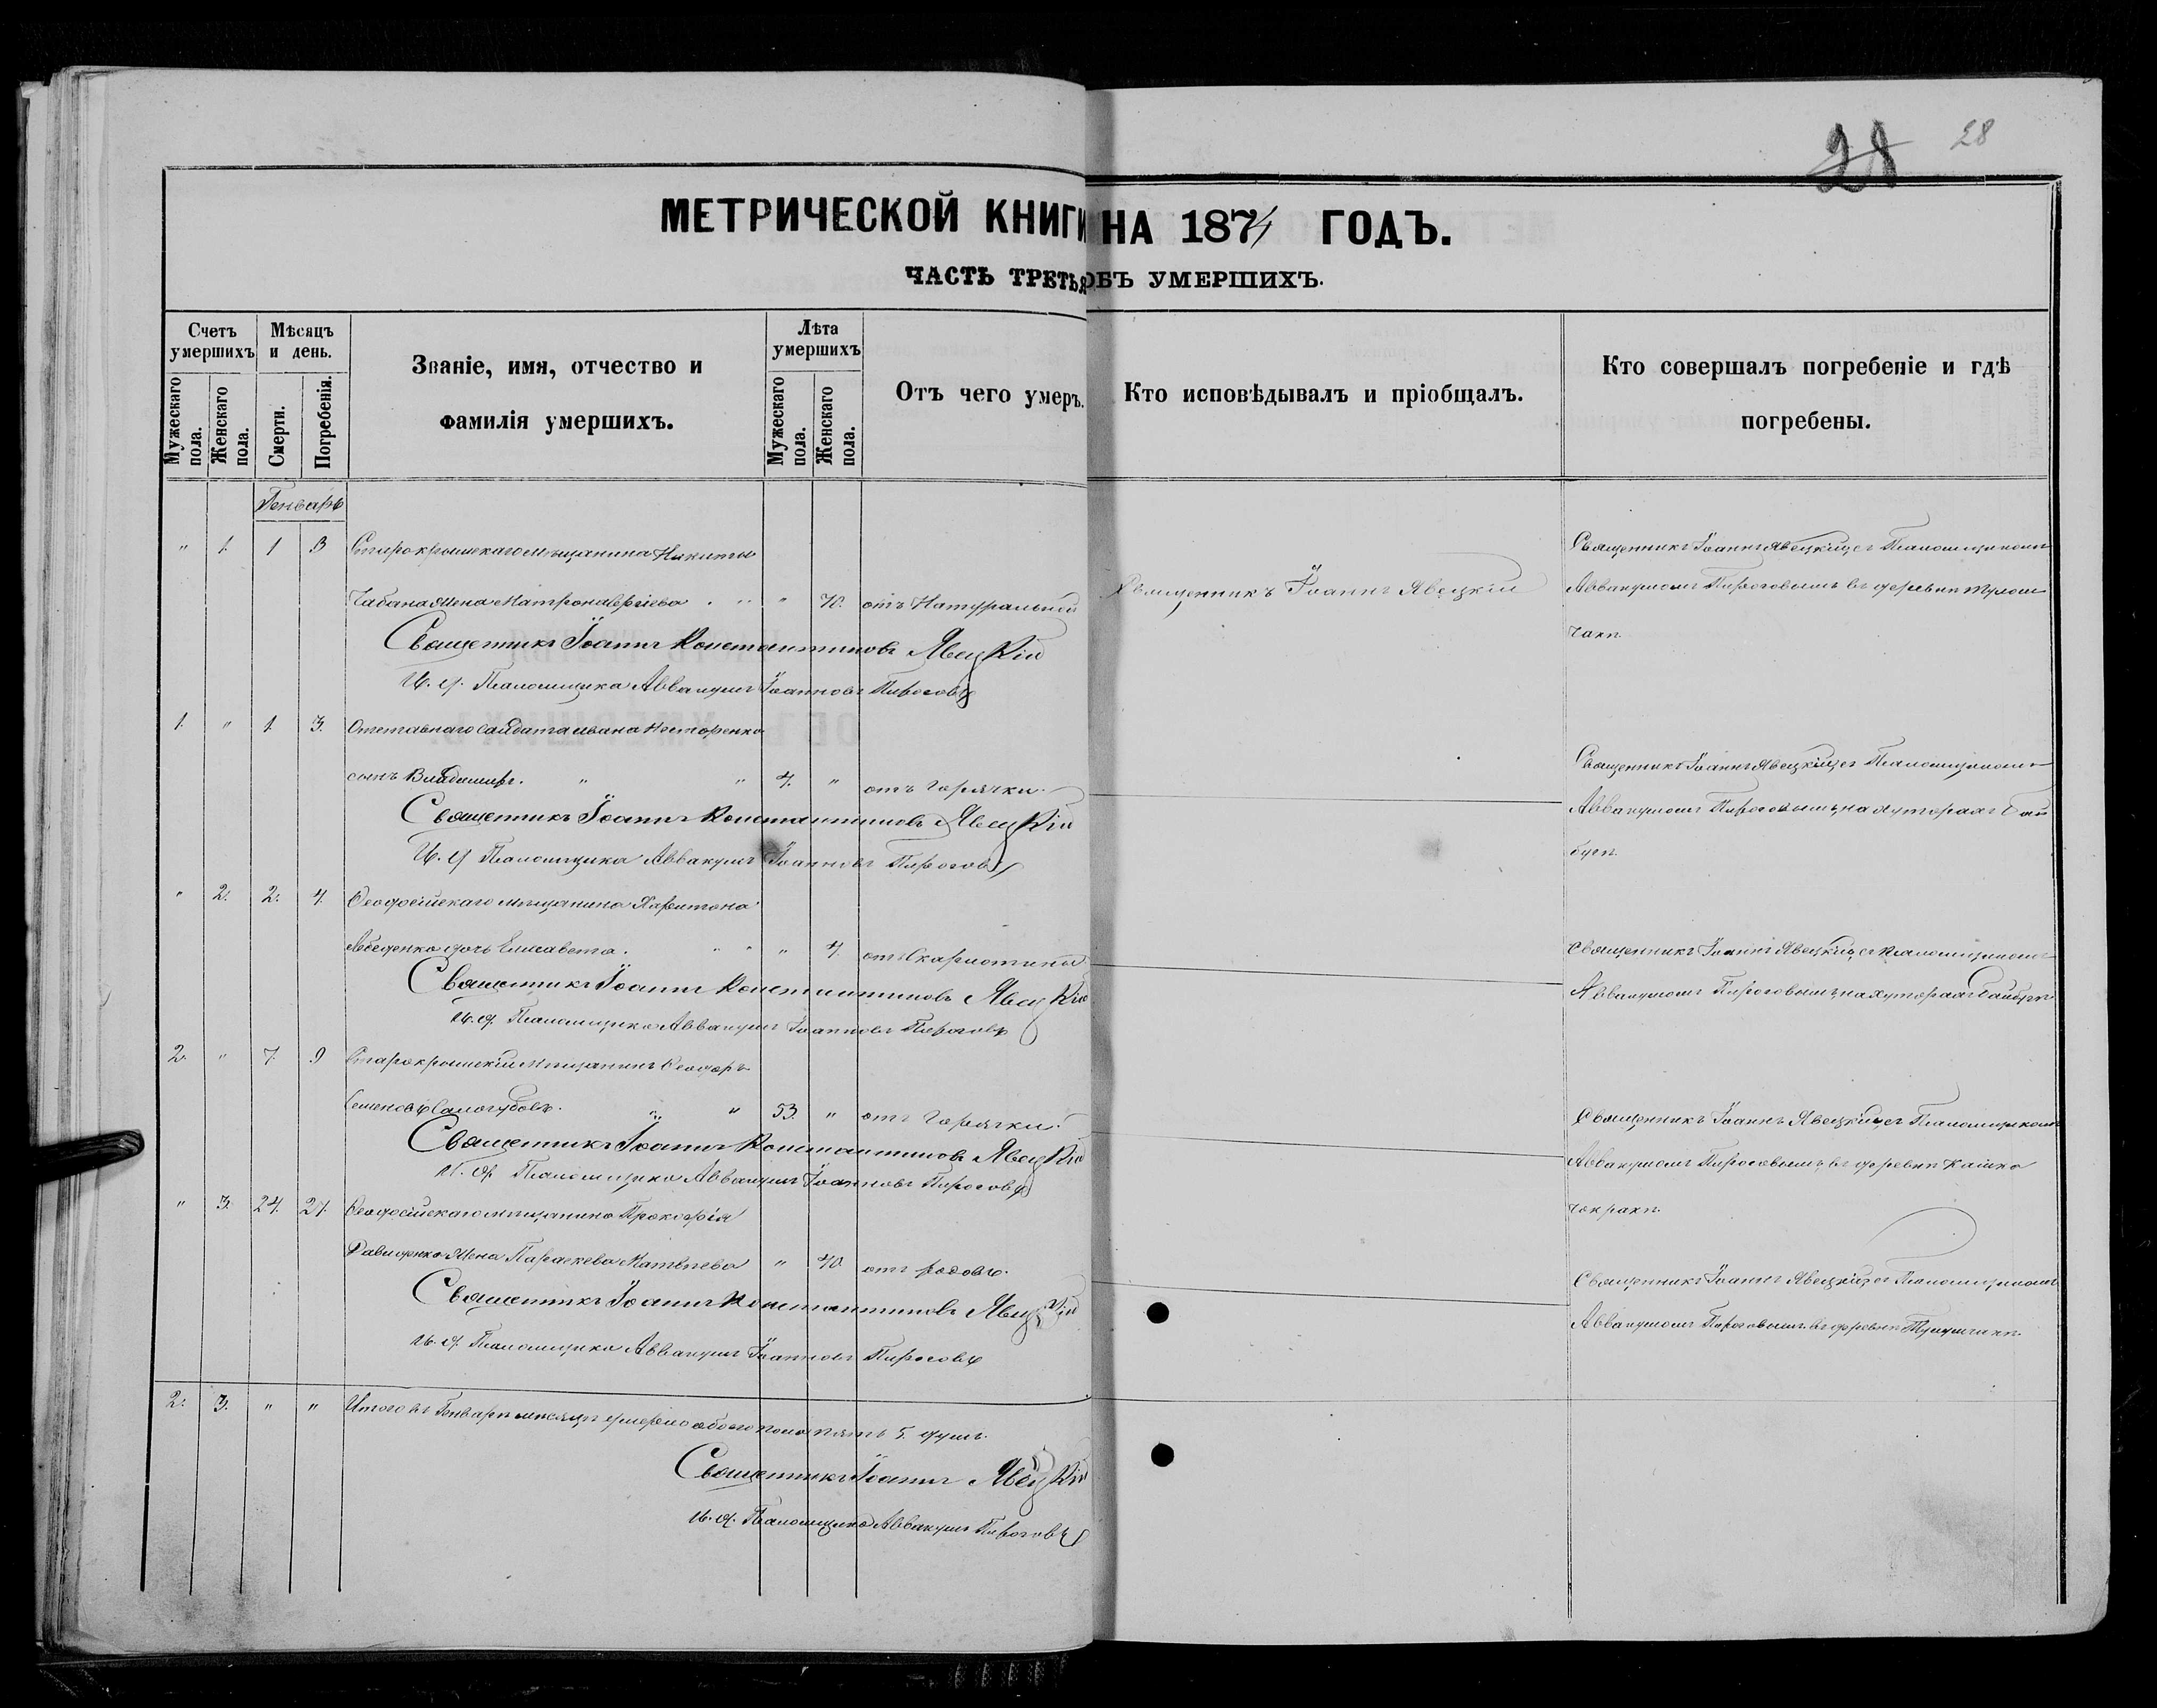 28 28
МЕТРИЧЕСКОЙ КНИГИ НА 1874 ГОДЪ.
ЧАСТЬ ТРЕТЬЯ ОБЪ УМЕРШИХЪ.
Счетъ умершихъ
Мужескаго пола.
Женскаго пола.
Мѣсяцъ и день.
Смерти.
Погребенія.
Званіе, имя, отчество и
фамилія умершихъ.
Лѣта умершихъ
Мужескаго пола.
Женскаго пола.
Отъ чего умеръ.
Кто исповѣдывалъ и пріобщалъ.
Кто совершалъ погребеніе и гдѣ
погребены.
Генварь
" 1. 1 3 Старокрымскаго мѣщанина Никиты
Чабана жена Матрона " 70. отъ Натуральной
Священникъ Іоаннъ Явецкій
Священникъ Іоаннъ Явецкій съ Псаломщикомъ
Аввакумомъ Пироговымъ въ деревнѣ
Священникъ Іоаннъ Константиновъ Явецкій
И. д. Псаломщика Аввакумъ Іоанновъ Пироговъ
1. " 1. 3. Отставнаго Солдата Ивана Нестеренко
сынъ Владимиръ. " " 4. " отъ Горячки.
Священникъ Іоаннъ Явецкій съ Псаломщикомъ
Аввакумомъ Пироговымъ на хуторахъ Бай
бугѣ
Священникъ Іоаннъ Константиновъ Явецкій
И. д. Псаломщика Аввакумъ Іоанновъ Пироговъ
" 2. 2. 4. Ѳеодосійскаго мѣщанина Харитона
дочь Елисавета. " " " 4. отъ Скарлотины
Священникъ Іоаннъ Явецкій съ Псаломщикомъ
Аввакумомъ Пироговымъ на хуторахъ Байбугѣ
Священникъ Іоаннъ Константиновъ Явецкій
И. д. Псаломщика Аввакумъ Іоанновъ Пироговъ
2. " 7. 9 Старокрымскій Мѣщанинъ Ѳеодоръ
Семеновъ Самогубовъ. " " 53. " отъ Горячки.
Священникъ Іоаннъ Явецкій съ Псаломщикомъ
Аввакумомъ Пироговымъ въ деревнѣ Кашка
чокракѣ.
Священникъ Іоаннъ Константиновъ Явецкій
И. д. Псаломщика Аввакумъ Іоанновъ Пироговъ
" 3. 24. 27. Ѳеодосійскаго мѣщанина Прокофія
Давиденко жена Параскева Матвѣева " 40. отъ родовъ.
Священникъ Іоаннъ Явецкій съ Псаломщикомъ
Аввакумомъ Пироговымъ въ деревнѣ
Священникъ Іоаннъ Константиновъ Явецкій
И. д. Псаломщика Аввакумъ Іоанновъ Пироговъ
2. 3. " " Итого въ Генварѣ мѣсяцѣ умерло обоего пола пять 5. душъ.
Священникъ Іоаннъ Явецкій
И. д. Псаломщика Аввакумъ Пироговъ